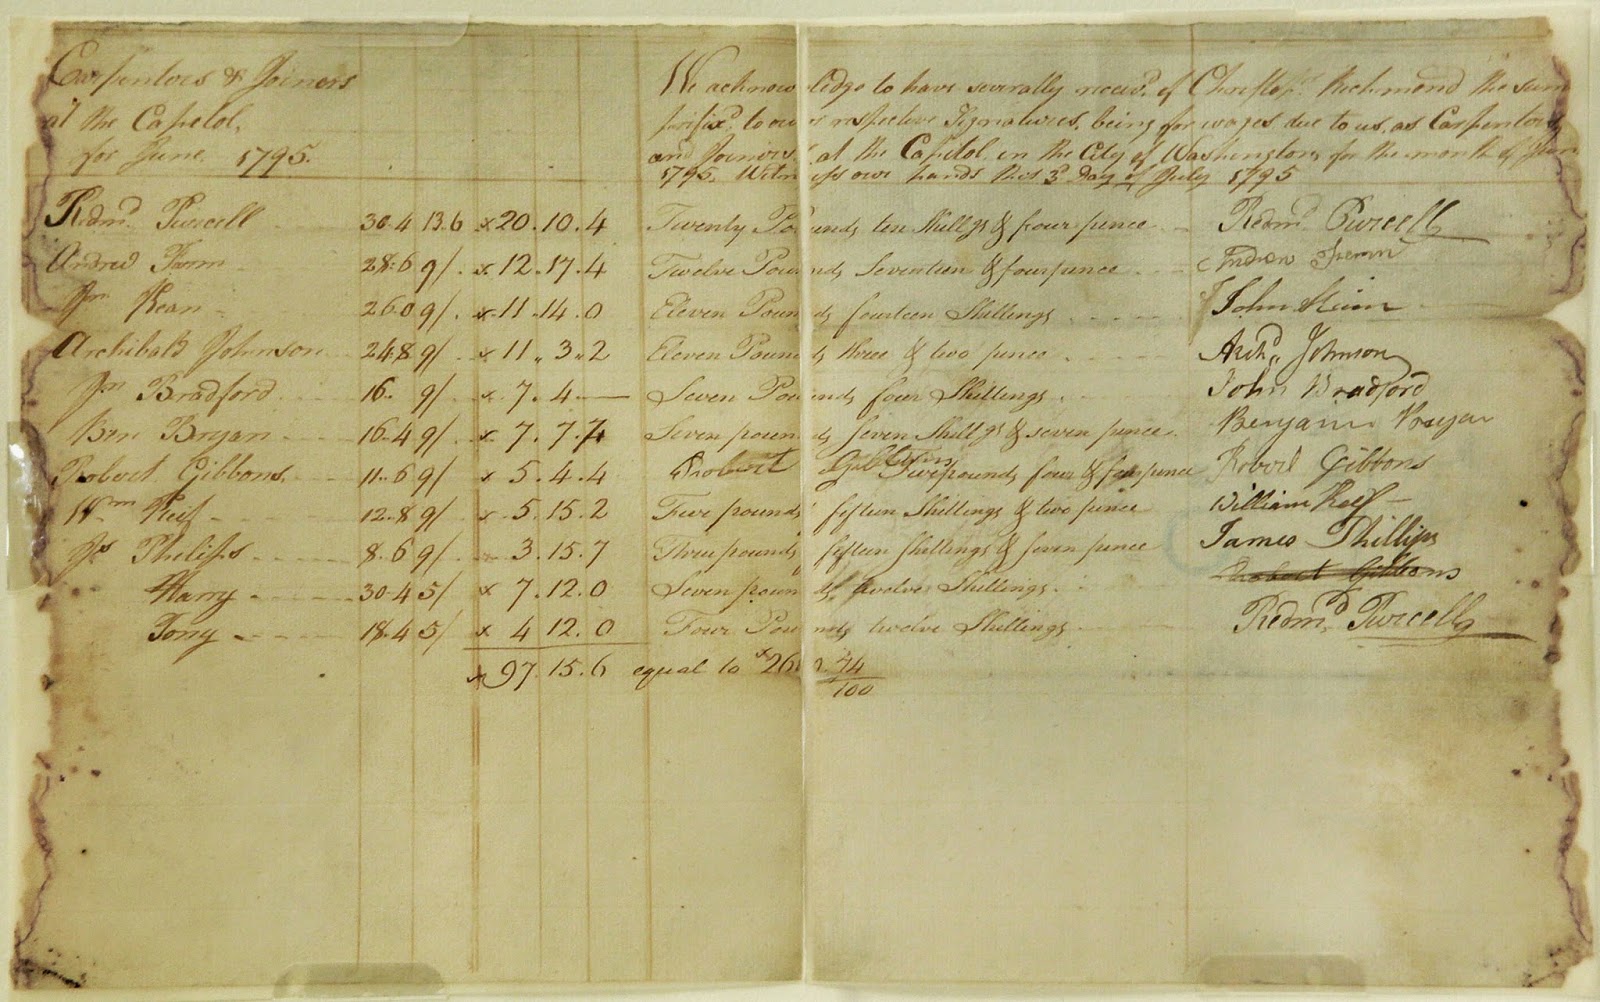 Carpenters & Joiners
at the Capitol,
for June 1795.
We acknowledge to have severally receivd. of Christopr. Richmond the sum
prefixd. to our respective Signatures, being for wages due to us, as Carpenters
and Joiners at the Capitol in the City of Washington, for the month of June
1795. Witness our hands this 3d. Day of July 1795
Redmd. Purcell 30.4 13.6 x 20.10.4 Twenty Pounds ten Shillgs & four pence Redmd. Purcell
Andrew 28.6 9/. x 12.17.4 Twelve Pounds Seventeen & four pence Andrew
Jno. Kean 26.0 9/. x 11.14.0 Eleven Pounds fourteen Shillings John
Archibald Johnson 24.8 9/ x 11.3.2 Eleven Pounds three & two pence Archd. Johnson
Jno. Bradford 16. 9/ x 7.4.— Seven Pounds four Shillings John Bradford
Ben Bryan 16.4 9/ x 7.7.7 Seven pounds seven Shillgs & seven pence Benjamin
Robert Gibbons 11.6 9/ x 5.4.4 Robert Gibbons Five pounds four & four pence Robert Gibbons
Wm. 12.8 9/ x 5.15.2 Five pounds fifteen Shillings & two pence William
Js Philips 8.6 9/ 3.15.7 Three pounds fifteen shillings & seven pence James Phillips
Robert Gibbons
Harry 30.4 5/ x 7.12.0 Seven pounds twelve Shillings
Tony 18.4 5/ x 4 12.0 Four Pounds twelve Shillings Redmd. Purcell
x 97.15.6 equal to 74/100